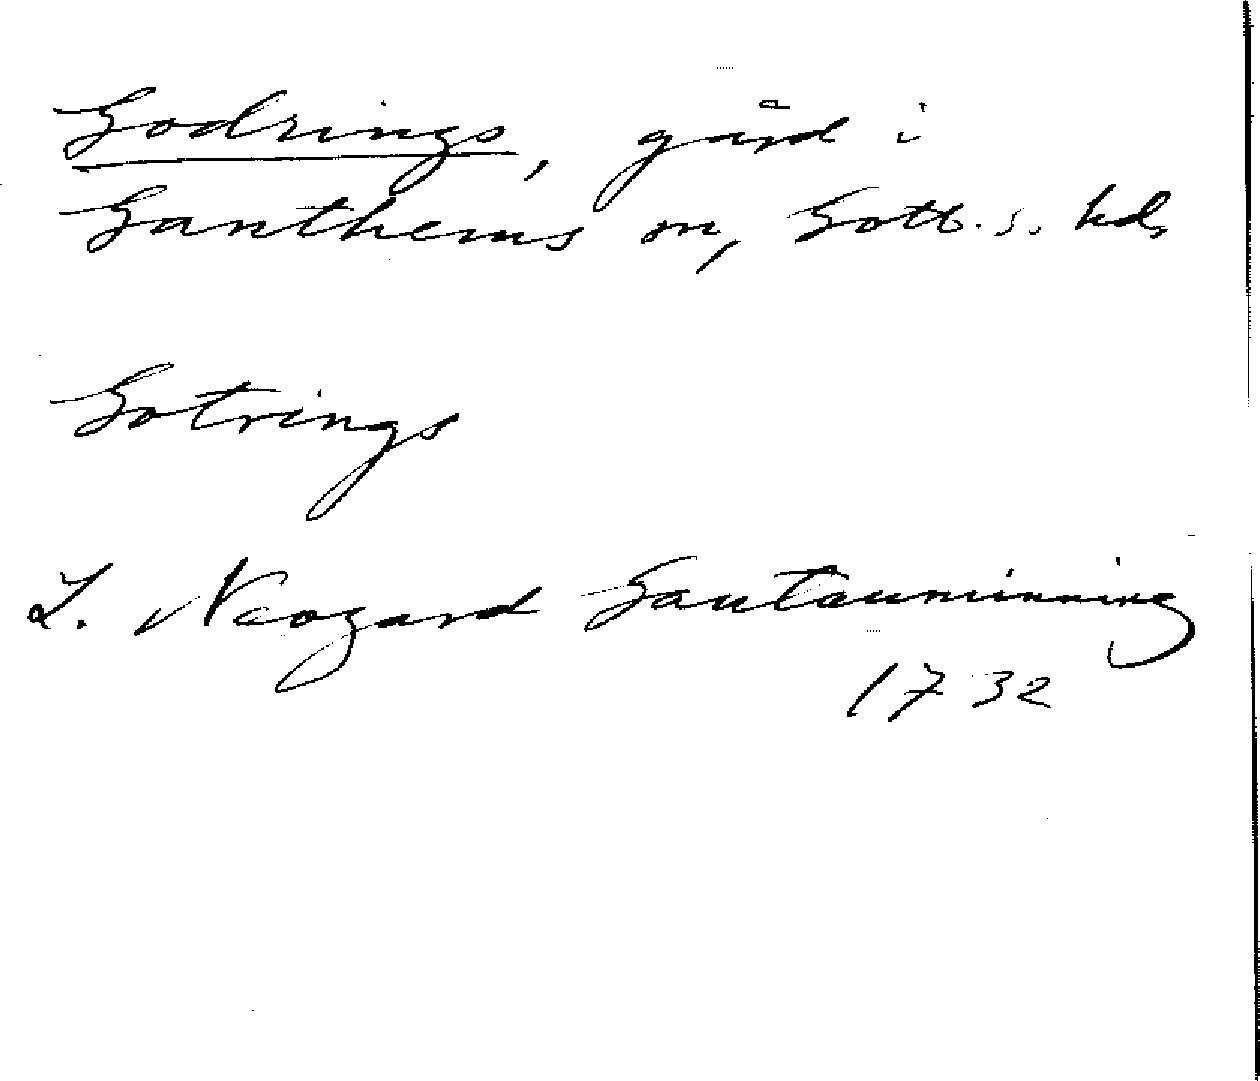 Godrings, gård i
Ganthems sn, Gotl. s. hd,
Gotrings
L. Neogard Gautauminning
1732